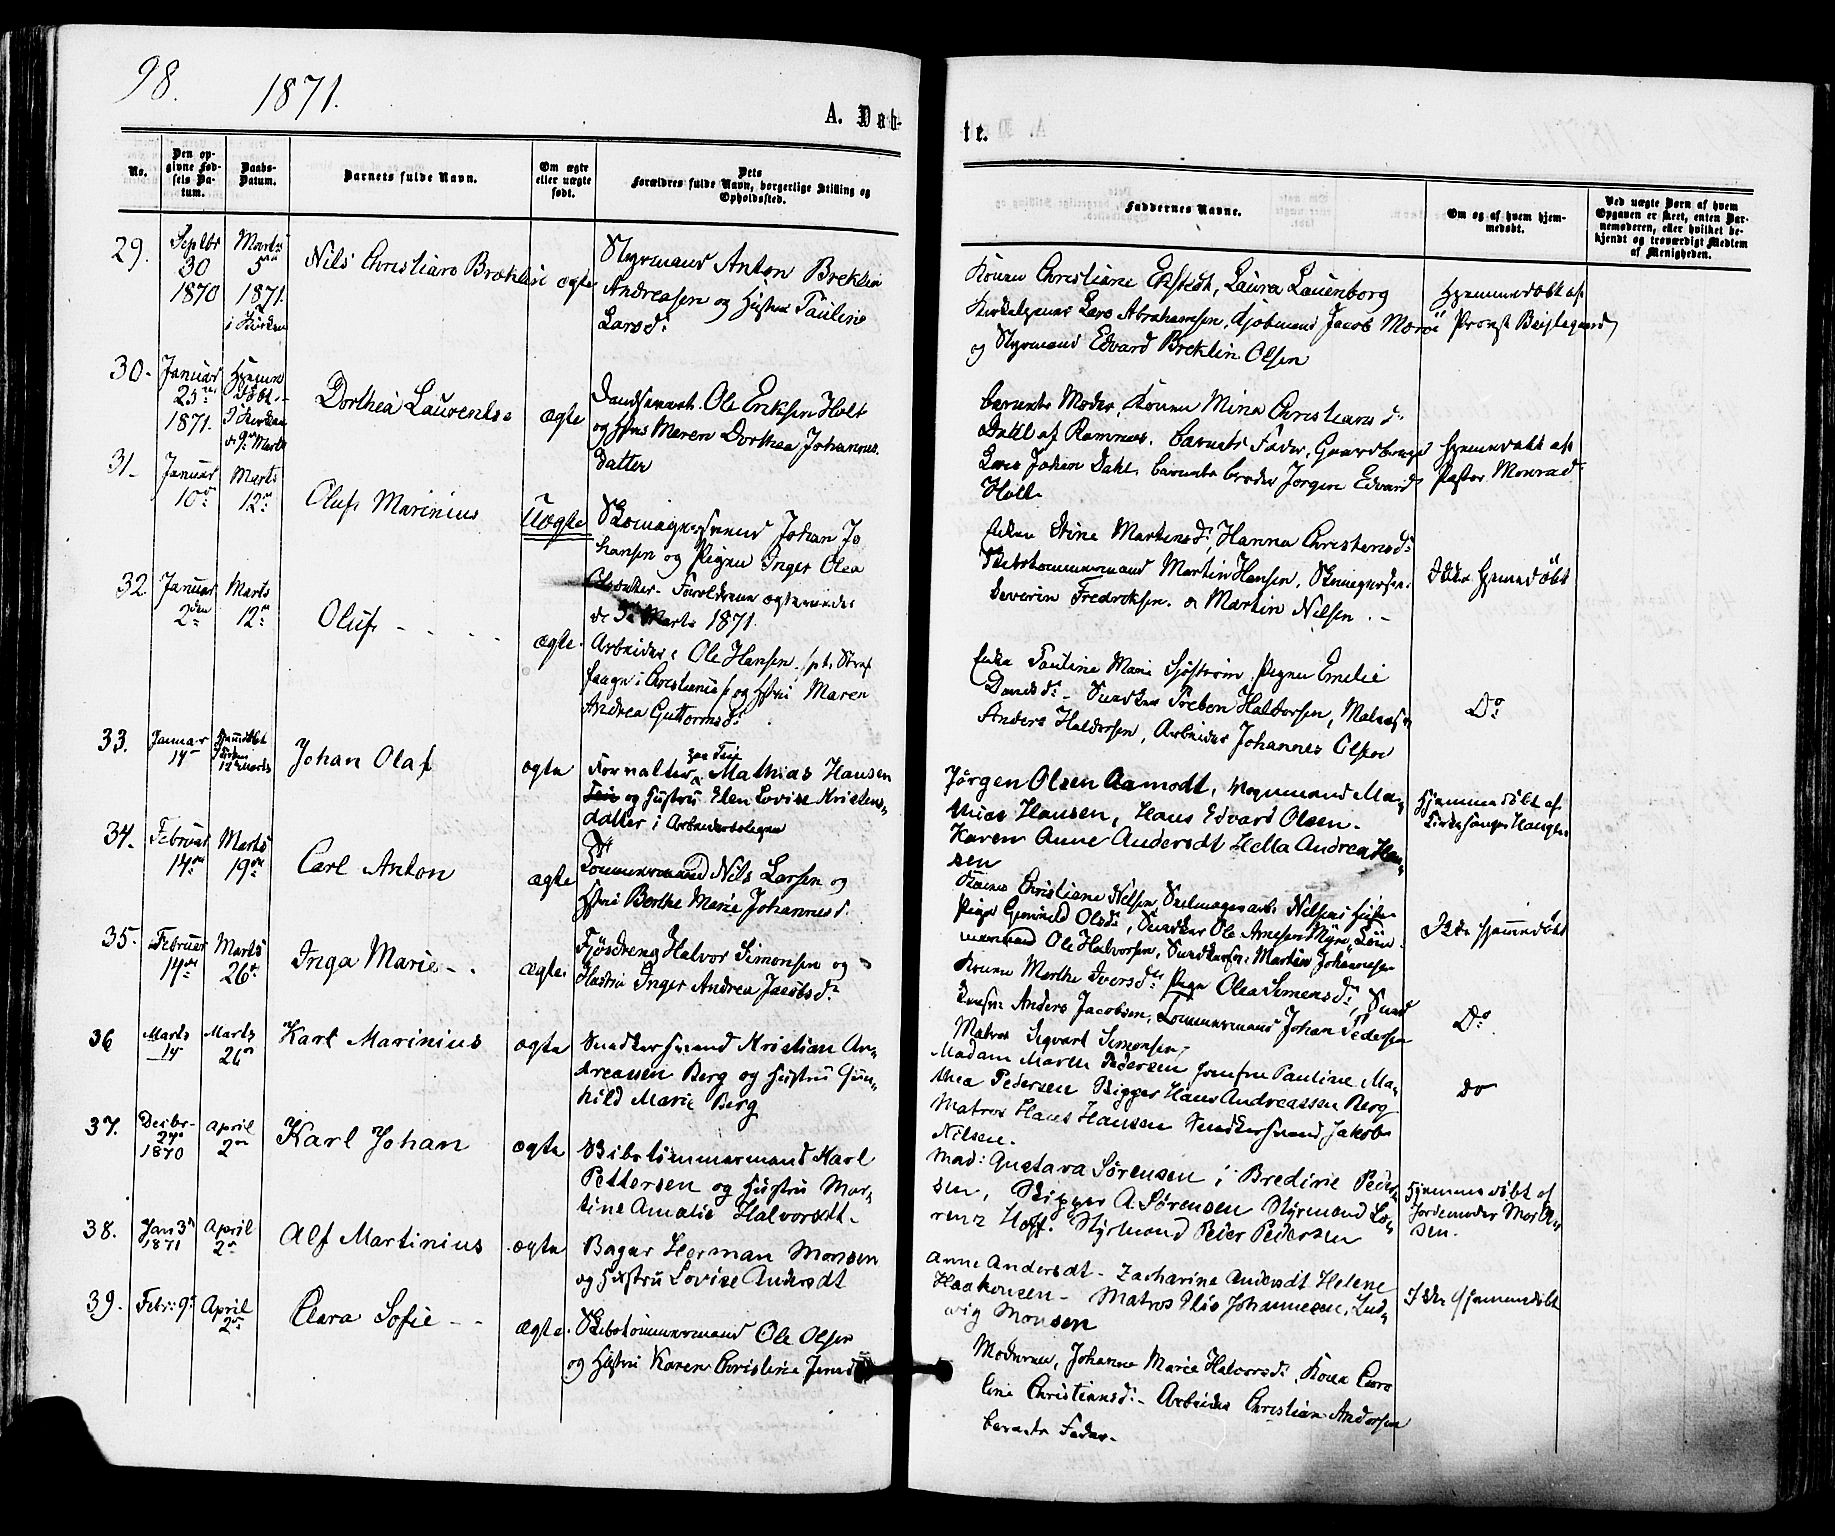 98.
1871.
A. Dab-
te.
No.
Den op-
givne Fød-
sels Da-
tum.
Daabs-
Datum.
Barnets fulde Navn.
Om ægte
eller uægte
født.
Dets
Forældres fulde Navn, borgerlige Stilling og
Opholdssted.
Faddernes Navne.
Om og af hvem hjem-
medøbt.
Ved uægte Børn af hvem
Opgaven er skeet, enten Bar-
nemoderen, eller hvilket be-
kjendt og troværdigt Medlem
af Menigheden.
29.
Septbr
30
1870
Marts
5
1871.
i Kirken
Nils Christians Breklin
ægte
Styrmand Anton Breklin
Andreasen og Hustru Pauline
Larsd:
Konen Christiane Laura Lauenborg
Lars Abrahamsen, Kjøbmand Jacob
og Styrmand Edvard Breklin Olsen
Hjemmedøbt af
Provst
30.
Januar
25
1871.
Hjemme
døbt
i Kirken
d 9 Marts
Dorthea Laurentse
ægte
Ole Eriksen Holt
og Maren Dorthea Johannes
datter
barnets Moder, Konen Mina Christians d:
Dahl af Ramnæs. barnets Fader, Gaardbruger
Lars Johan Dahl. barnets broder Jørgen Edvard
Holt.
Hjemmedøbt af
Pastor Monrad
31.
Januar
10
Marts
12
Oluf Marinius
Uægte
Skomagersvend Johan Jo
hansen og Pigen Inger Olea
Forældrene ægteviede
de Marts 1871.
Stine Martinsd:, Hanna Christensd:
Skibstømmermand Martin Hansen,
Severin Fredriksen. og Martin Nilsen.
Ikke Hjemmedøbt
32
Januar
2
Marts
12
Oluf
ægte.
Arbeider Ole Hansen. /pt. Straf
fange i Christiania/ og Maren
Andrea Guttormsd:
Pauline Marie Sjøstrøm, Pigen Emilie
Snedker Preben Haldorsen, Matros
Anders Haldorsen, Arbeider Johannes Olsen
Do
33.
Januar
14
Hjemdøbt
i Kirken
12 Marts
Johan Olaf
ægte
Forvalter Mathias Hansen
og Hustru Elen Lovise Kristens
datter i Arbeiderboligen
Jørgen Olsen Aamodt, Vognmand Ma-
thias Hansen, Hans Edvard Olsen.
Karen Anne Andersdt Hella Andrea Han-
sen
Hjemmedøbt af
Kirkesanger Haugen
34.
Februar
14
Marts
19
Carl Anton
ægte
Tømmermand Nils Larsen og
Berthe Marie Johannesd.
Konen Christiane Nilsen, Nilsens
Pige Gunnild Olsd:, Snedker Ole Arnesen Myre, Tøm
mermand Ole Halvorsen, Martin Johannesen
Ikke Hjemmedøbt
35.
Februar
14
Marts
26
Inga Marie
ægte.
Fjøsdreng Halvor Simonsen og
Hustru Inger Andrea Jacobsd:
Konen Marthe Iversd: Pige Olea Simensd:, Sned
Anders Jacobsen, Tømmermand Johan Pedersen
Matros Sigvart Simonsen,
Do.
36
Marts
14
Marts
26
Karl Marinius
ægte
Snedkersvend Kristian An-
dreassen Berg og Hustru Gun-
hild Marie Berg
Madam Marthe Pedersen Jomfru Pauline Ma-
thea Pedersen Skipper Hans Andreassen Berg
Matros Hans Hansen Snedkersvend Jakob
Nilsen.
do
37.
Desbr
27
1870
April
2
Karl Johan
ægte
Skibstømmermand Karl
Pettersen og Hustru Mar-
tine Amalie Halvorsdt.
Mad: Gustava Sørensen, i Bredine Peder-
sen, Skipper A. Sørensen Styrmand Lo-
renz Hoff. Styrmand Peter Pedersen
Hjemmedøbt af
Jordemoder
sen.
38.
Jan 3
1871
April
2
Alf Martinius
ægte
Bager Herman Monsen
og Hustru Lovise Andersdt
Anne Andersdt - Zacharine Andersdt Helene
Haakonsen - Matros Nils Johannesen, Lud-
vig Monsen
Ikke Hjemmedøbt
39.
Febr: 9
April
2
Clara Sofie
ægte.
Skibstømmermand Ole Olsen
og Hustru Karen Christine
Moderen, Johanne Marie Halvorsd: Kone Caro
line Christiansd: Arbeider Christian Andersen
barnets Fader.